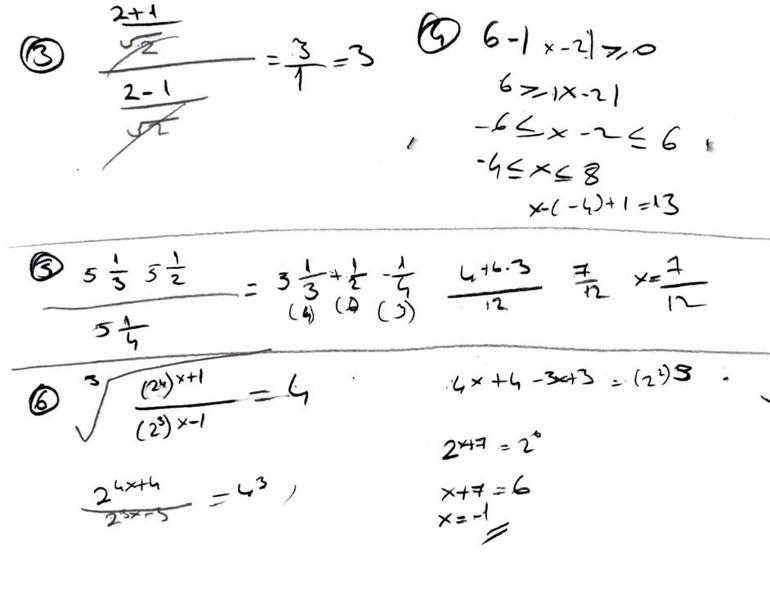 ③ 2+1
√2
2-1
√2
= 3/1 = 3
④ 6-|x-2|≥0
6≥|x-2|
-6≤x-2≤6
-4≤x≤8
x-(-4)+1=13
⑤ 5 1/3 5 1/2
5 1/4
= 3 1/3 + 1/2 - 1/4
(4) (3)
4+6-3
12
7/12
x=7/12
⑥ ∛ (2⁴)ˣ⁺¹ / (2³)ˣ⁻¹ = 4
2⁴ˣ⁺⁴ / 2³ˣ⁻³ = 4³
4x+4-3x+3 = (2²)3
2ˣ⁺⁷ = 2⁶
x+7=6
x=-1